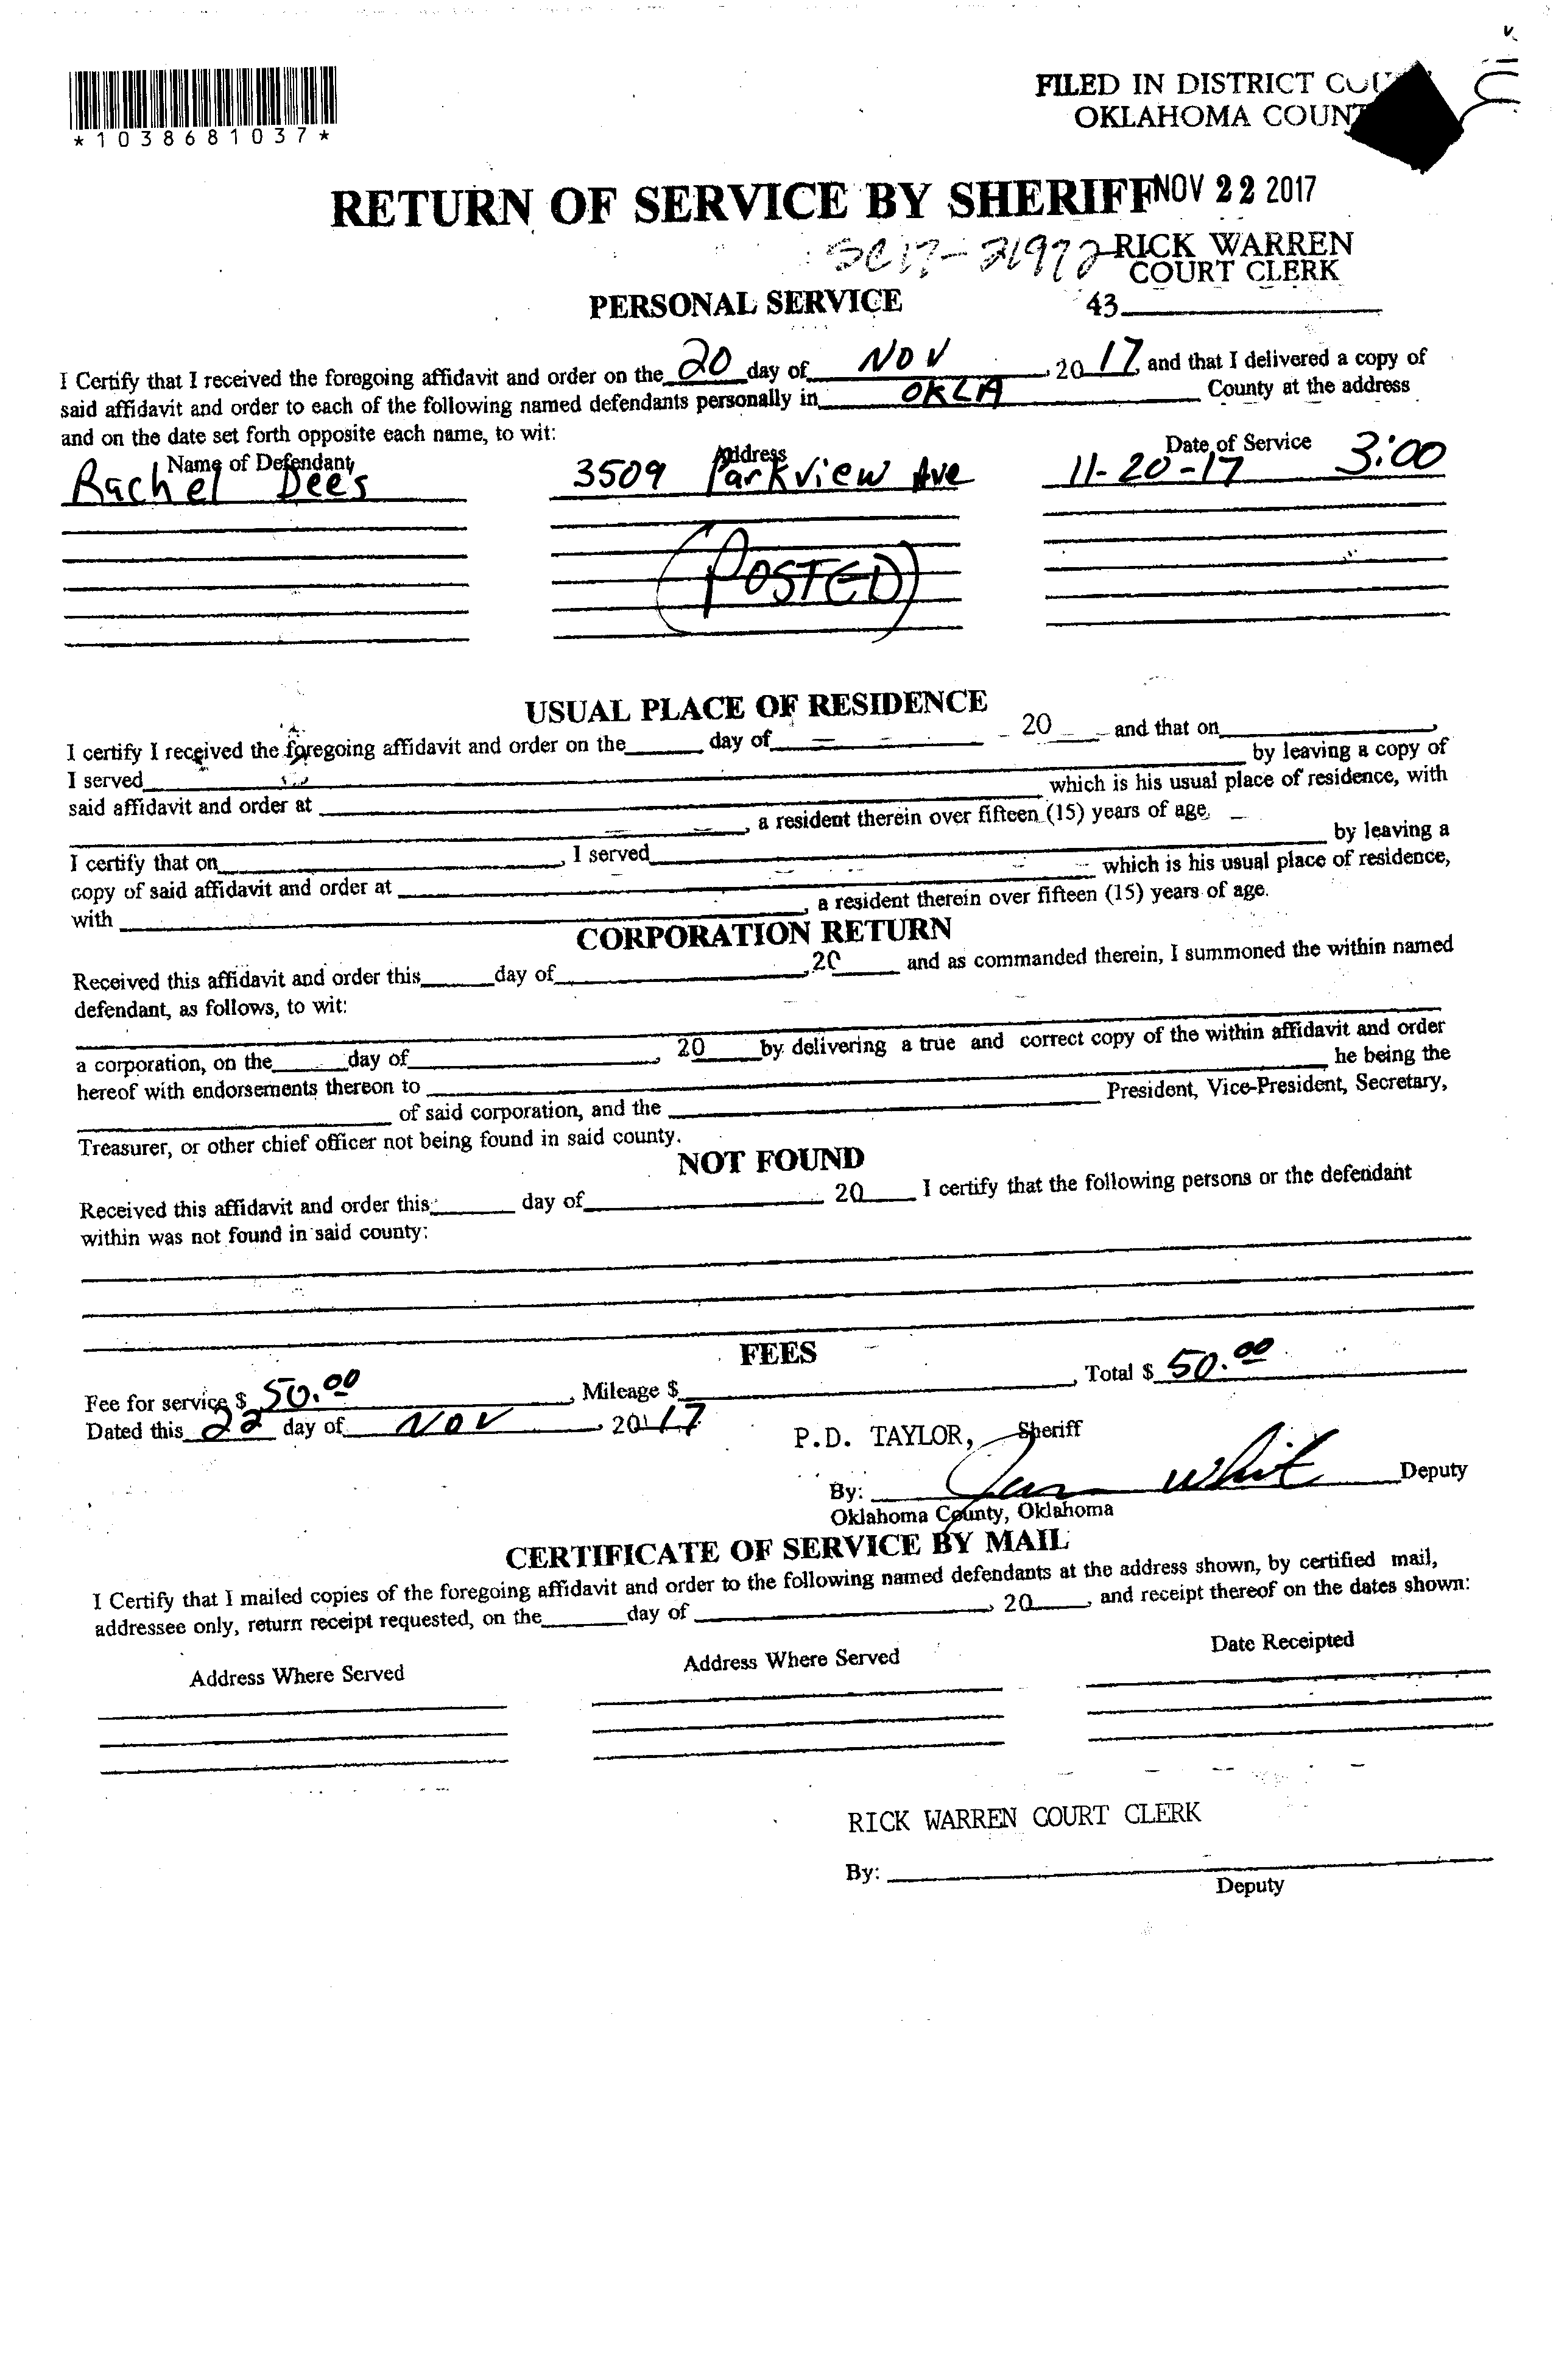 FILED IN DISTRICT COU
OKLAHOMA COUNT
*1038681037*
RETURN OF SERVICE BY SHERIFF NOV 22 2017
SC17-21972 RICK WARREN
COURT CLERK
PERSONAL SERVICE 43
I Certify that I received the foregoing affidavit and order on the 20 day of NOV, 20 17, and that I delivered a copy of
said affidavit and order to each of the following named defendants personally in OKLA County at the address
and on the date set forth opposite each name, to wit:
Name of Defendant Address Date of Service
Rachel Dees 3509 Parkview Ave 11-20-17 3:00
(POSTED)
USUAL PLACE OF RESIDENCE
I certify I received the foregoing affidavit and order on the day of 20 and that on ,
I served by leaving a copy of
said affidavit and order at which is his usual place of residence, with
, a resident therein over fifteen (15) years of age.
I certify that on , I served by leaving a
copy of said affidavit and order at which is his usual place of residence,
with , a resident therein over fifteen (15) years of age.
CORPORATION RETURN
Received this affidavit and order this day of , 20 and as commanded therein, I summoned the within named
defendant, as follows, to wit:
a corporation, on the day of , 20 by delivering a true and correct copy of the within affidavit and order
hereof with endorsements thereon to he being the
of said corporation, and the President, Vice-President, Secretary,
Treasurer, or other chief officer not being found in said county.
NOT FOUND
Received this affidavit and order this day of 20 I certify that the following persons or the defendant
within was not found in said county:
FEES
Fee for service $ 50.00, Mileage $ , Total $ 50.00
Dated this 22 day of NOV, 2017
P.D. TAYLOR, Sheriff
By: Deputy
Oklahoma County, Oklahoma
CERTIFICATE OF SERVICE BY MAIL
I Certify that I mailed copies of the foregoing affidavit and order to the following named defendants at the address shown, by certified mail,
addressee only, return receipt requested, on the day of , 20 , and receipt thereof on the dates shown:
Address Where Served Address Where Served Date Receipted
RICK WARREN COURT CLERK
By:
Deputy